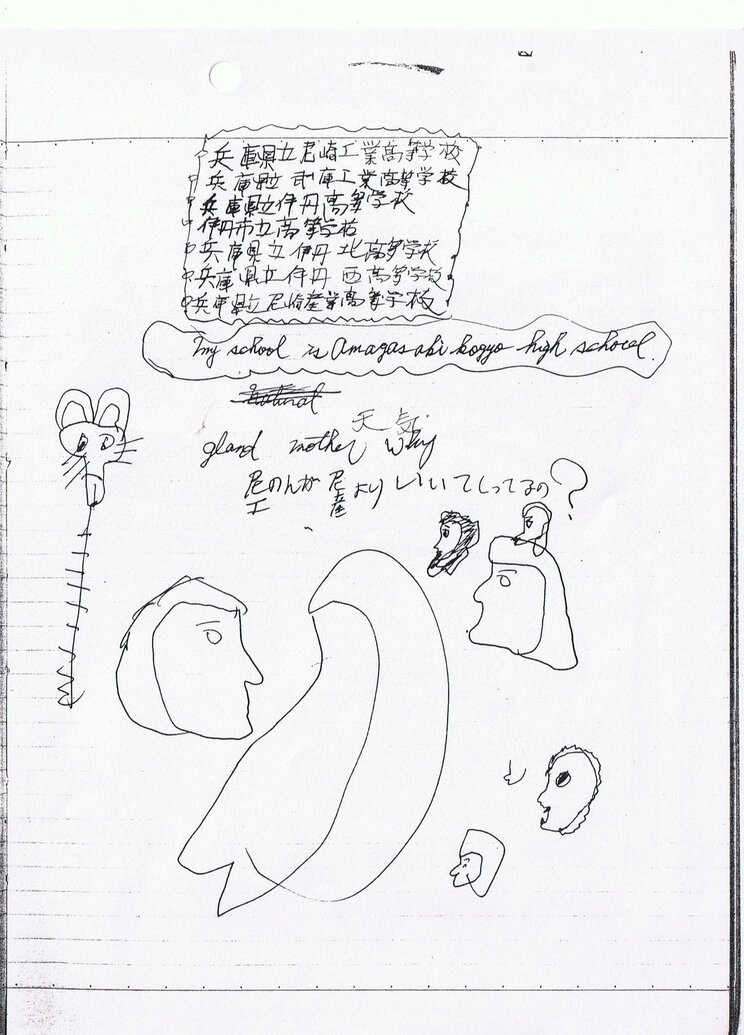 兵庫県立尼崎工業高等学校
兵庫県立武庫工業高等学校
兵庫県立伊丹高等学校
伊丹市立高等学校
兵庫県立伊丹北高等学校
兵庫県立伊丹西高等学校
兵庫県立尼崎産業高等学校
my school is Amagasaki kogyo high school.
天気
gland mother why
尼のんが尼よりいいてしってるの?
工 産